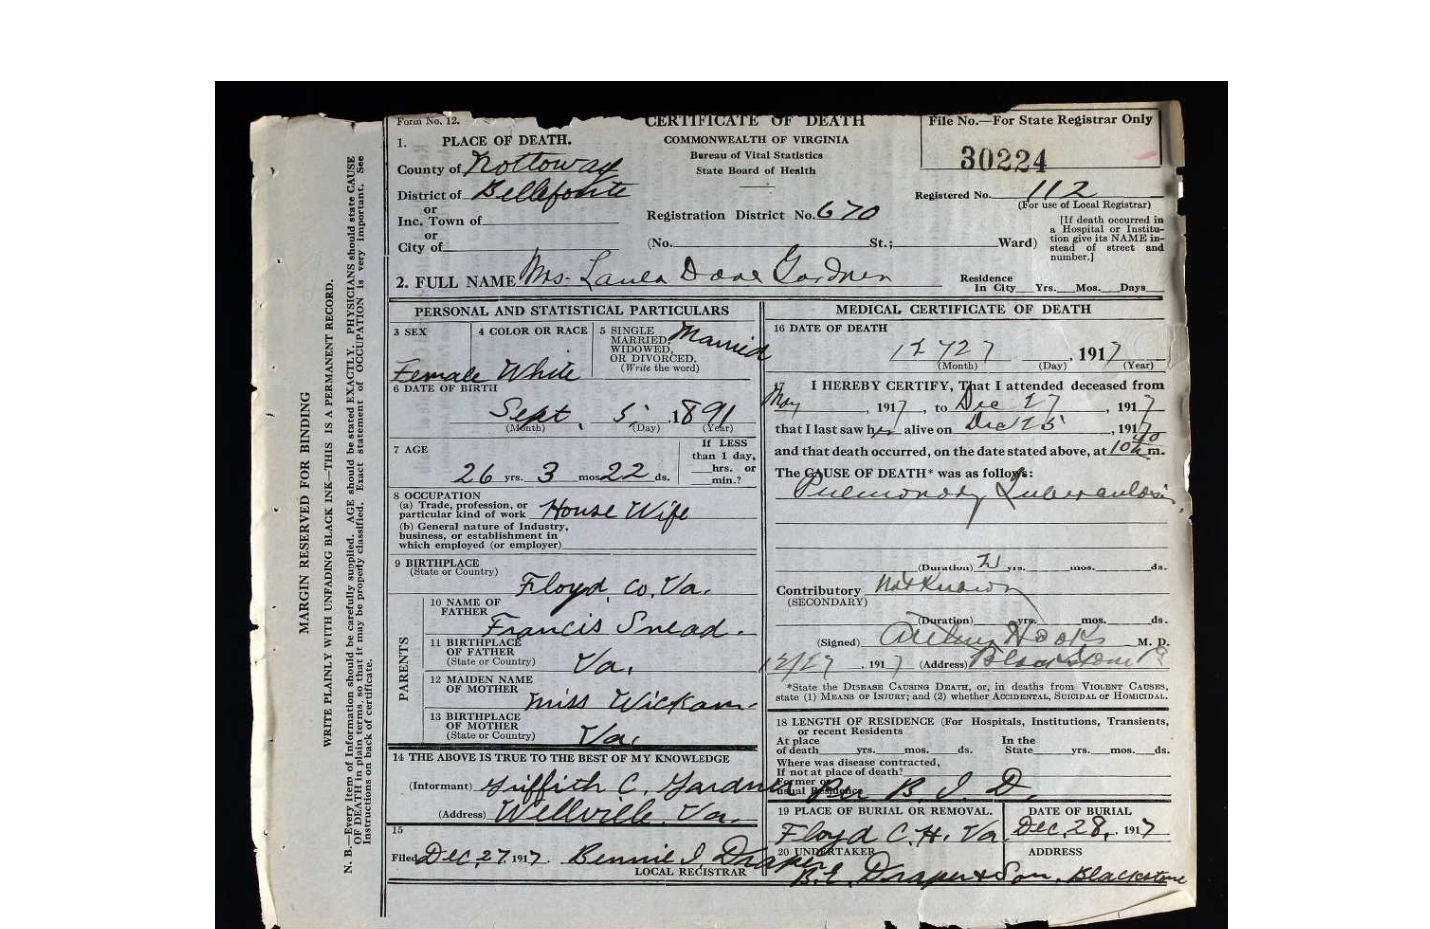 Form No. 12.
CERTIFICATE OF DEATH
COMMONWEALTH OF VIRGINIA
Bureau of Vital Statistics
State Board of Health
File No.—For State Registrar Only
30224
1. PLACE OF DEATH.
County of Nottoway
District of Bellefonte
or
Inc. Town of
or
City of
Registration District No. 670
Registered No. 112
(For use of Local Registrar)
(No. St.; Ward)
[If death occurred in
a Hospital or Institu-
tion give its NAME in-
stead of street and
number.]
2. FULL NAME Mrs. Gardner
Residence
In City Yrs. Mos. Days
PERSONAL AND STATISTICAL PARTICULARS
3 SEX
Female
4 COLOR OR RACE
White
5 SINGLE
MARRIED
WIDOWED,
OR DIVORCED.
(Write the word)
Married
6 DATE OF BIRTH
Sept. 5, 1891
(Month) (Day) (Year)
7 AGE
26 yrs. 3 mos 22 ds.
If LESS
than 1 day,
hrs. or
min.?
8 OCCUPATION
(a) Trade, profession, or
particular kind of work House Wife
(b) General nature of Industry,
business, or establishment in
which employed (or employer)
9 BIRTHPLACE
(State or Country)
Floyd, Co, Va.
PARENTS
10 NAME OF
FATHER
Francis Snead.
11 BIRTHPLACE
OF FATHER
(State or Country) Va.
12 MAIDEN NAME
OF MOTHER
Miss Wickam
13 BIRTHPLACE
OF MOTHER
(State or Country) Va.
14 THE ABOVE IS TRUE TO THE BEST OF MY KNOWLEDGE
(Informant) Griffith C. Gardner
(Address) Wellville, Va.
15
Filed Dec, 27, 1917. Bennie I. Draper
LOCAL REGISTRAR
MEDICAL CERTIFICATE OF DEATH
16 DATE OF DEATH
12 27, 1917
(Month) (Day) (Year)
17 I HEREBY CERTIFY, That I attended deceased from
May, 1917, to Dec 27, 1917
that I last saw her alive on Dec 25, 1917
and that death occurred, on the date stated above, at m.
The CAUSE OF DEATH* was as follows:
Pulmonary Tuberculosis
(Duration) yrs. mos. ds.
Contributory Not Known
(SECONDARY)
(Duration) yrs. mos. ds.
(Signed) Hooks M. D.
12/27, 1917 (Address) Blackstone
*State the DISEASE CAUSING DEATH, or, in deaths from VIOLENT CAUSES,
state (1) MEANS OF INJURY; and (2) whether ACCIDENTAL, SUICIDAL or HOMICIDAL.
18 LENGTH OF RESIDENCE (For Hospitals, Institutions, Transients,
or recent Residents
At place
of death yrs. mos. ds.
In the
State yrs. mos. ds.
Where was disease contracted,
If not at place of death?
Former or
usual Residence
Per B. I. D.
19 PLACE OF BURIAL OR REMOVAL.
Floyd C. H. Va
DATE OF BURIAL
Dec, 28, 1917
20 UNDERTAKER
B. E. Draper & Son,
ADDRESS
Blackstone
MARGIN RESERVED FOR BINDING
WRITE PLAINLY WITH UNFADING BLACK INK—THIS IS A PERMANENT RECORD.
N. B.—Every item of Information should be carefully supplied. AGE should be stated EXACTLY. PHYSICIANS should state CAUSE
OF DEATH in plain terms, so that it may be properly classified. Exact statement of OCCUPATION is very important. See
Instructions on back of certificate.